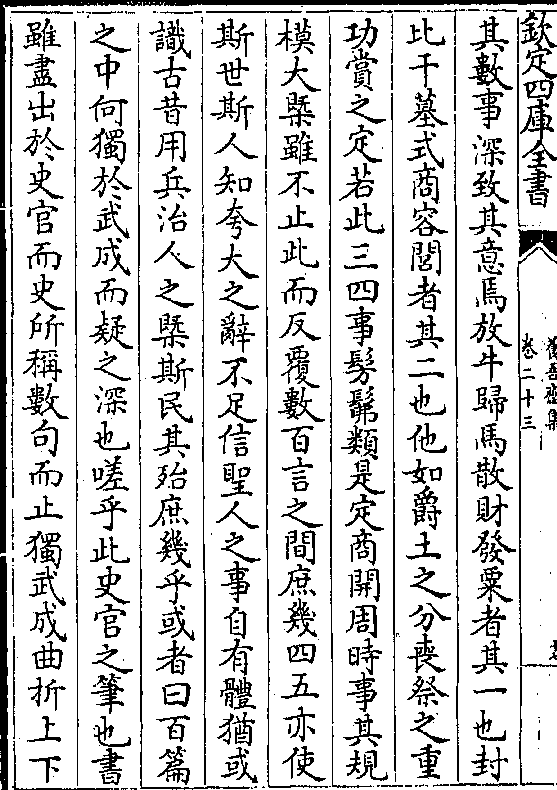 欽定四庫全書
卷二十三
其數事深致其意焉放牛歸馬散財發粟者其一也封
比干墓式商容閭者其二也他如爵土之分喪祭之重
功賞之定若此三四事髣髴類是定商開周時事其規
模大槩雖不止此而反覆數百言之間庶幾四五亦使
斯世斯人知夸大之辭不足信聖人之事自有體猶或
識古昔用兵治人之槩斯民其殆庶幾乎或者曰百篇
之中何獨於武成而疑之深也嗟乎此史官之筆也書
雖盡出於史官而史所稱數句而止獨武成曲折上下